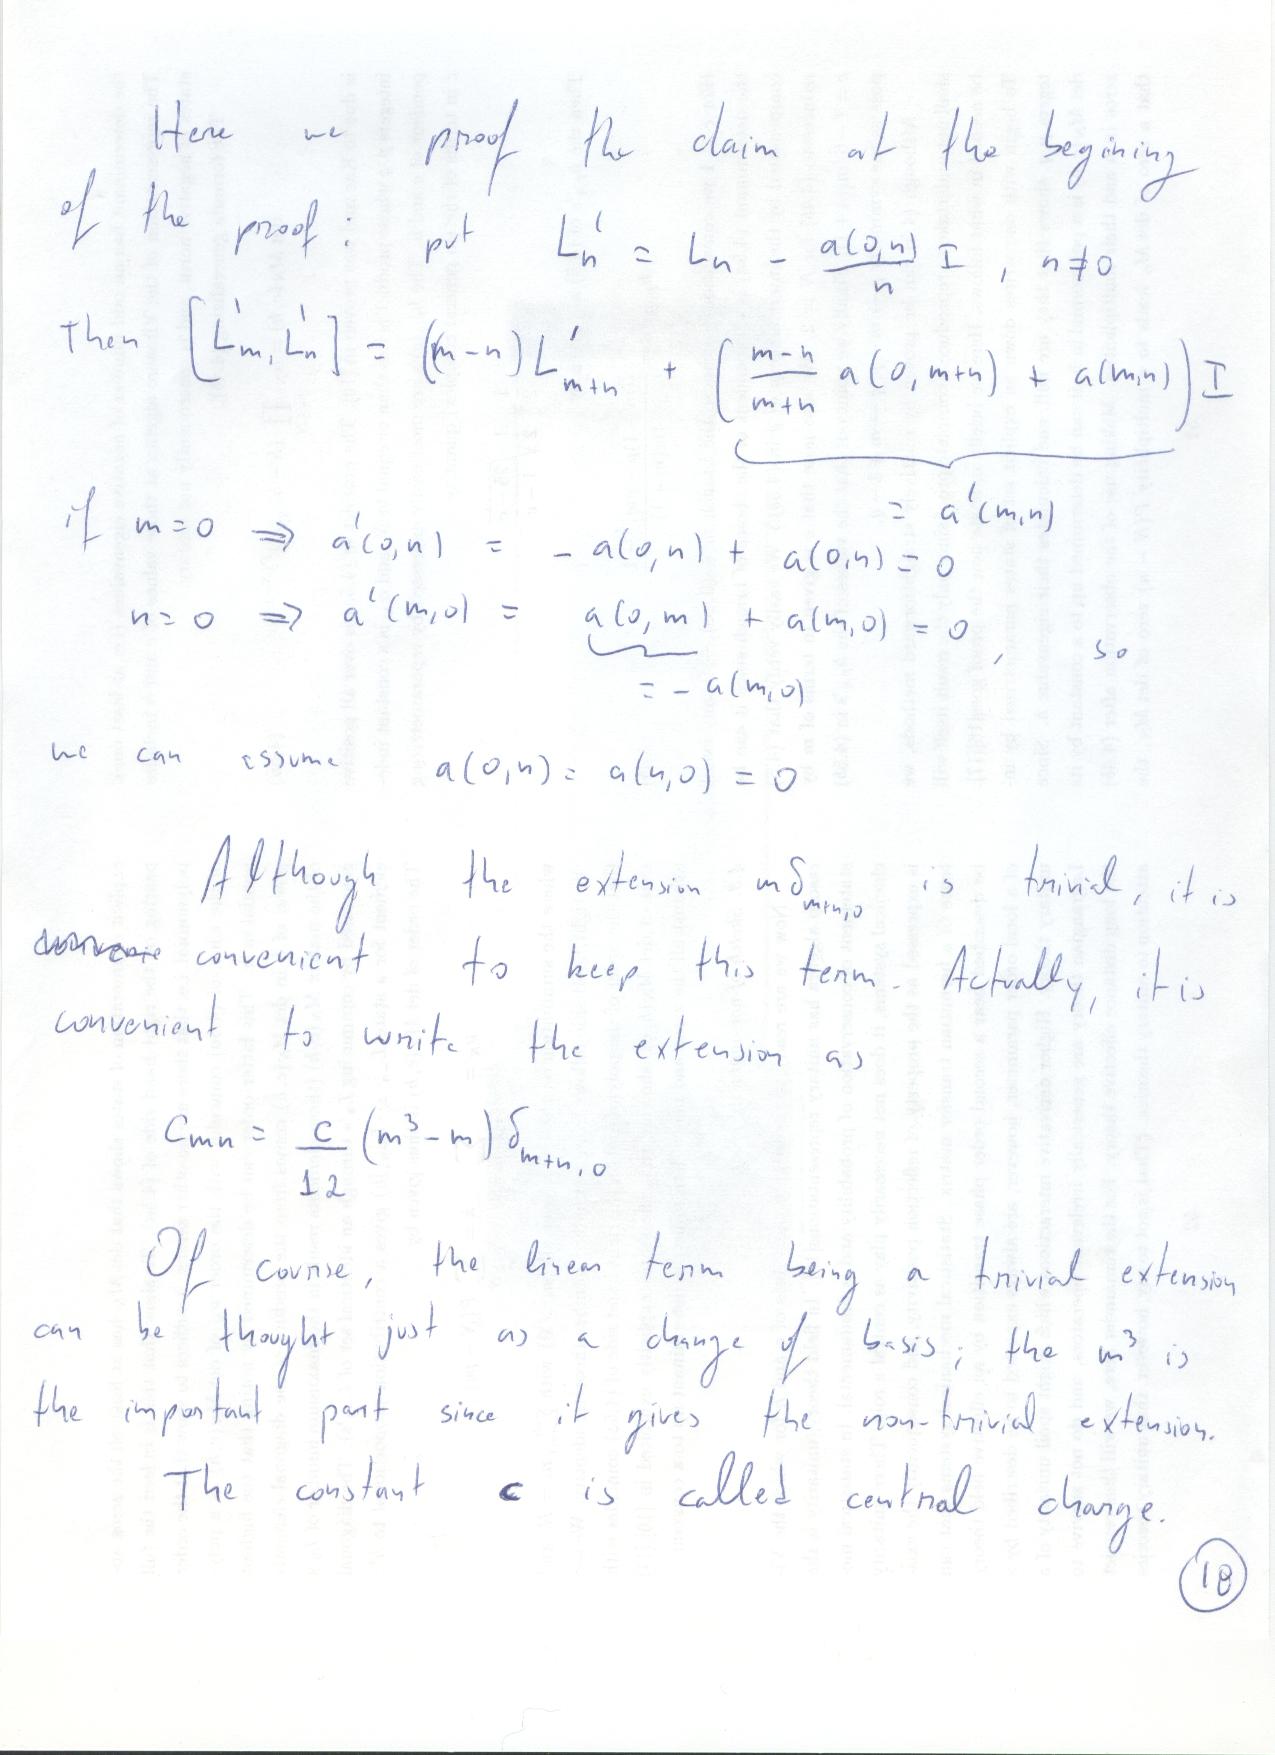 Here we proof the claim at the begining
of the proof: put L'_n = L_n - a(0,n)/n I, n≠0
Then [L'_m, L'_n] = (m-n) L'_{m+n} + (m-n/m+n a(0,m+n) + a(m,n)) I
= a'(m,n)
if m=0 ⇒ a'(0,n) = - a(0,n) + a(0,n) = 0
n=0 ⇒ a'(m,0) = a(0,m) + a(m,0) = 0, so
= - a(m,0)
we can assume a(0,n) = a(n,0) = 0
Although the extension m δ_{m+n,0} is trivial, it is
convenient to keep this term. Actually, it is
convenient to write the extension as
C_{mn} = c/12 (m³-m) δ_{m+n,0}
Of course, the linear term being a trivial extension
can be thought just as a change of basis; the m³ is
the important part since it gives the non-trivial extension.
The constant c is called central charge.
18